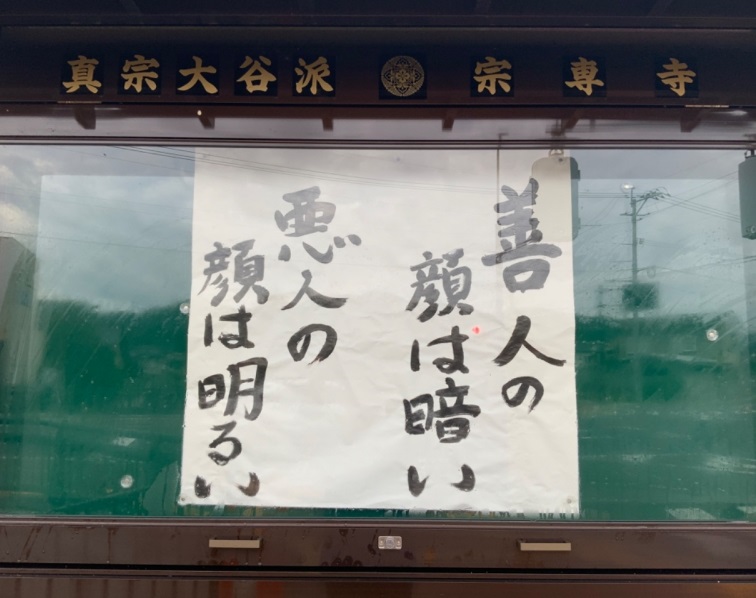 真宗大谷派 宗専寺
善人の
顔は暗い
悪人の
顔は明るい